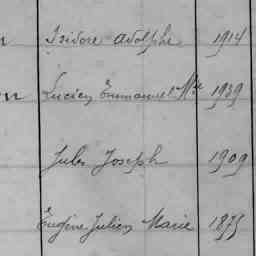 Isidore Adolphe 1914
Lucien Emmanuel Mie 1939
Jules Joseph 1909
Eugène Julien Marie 1875